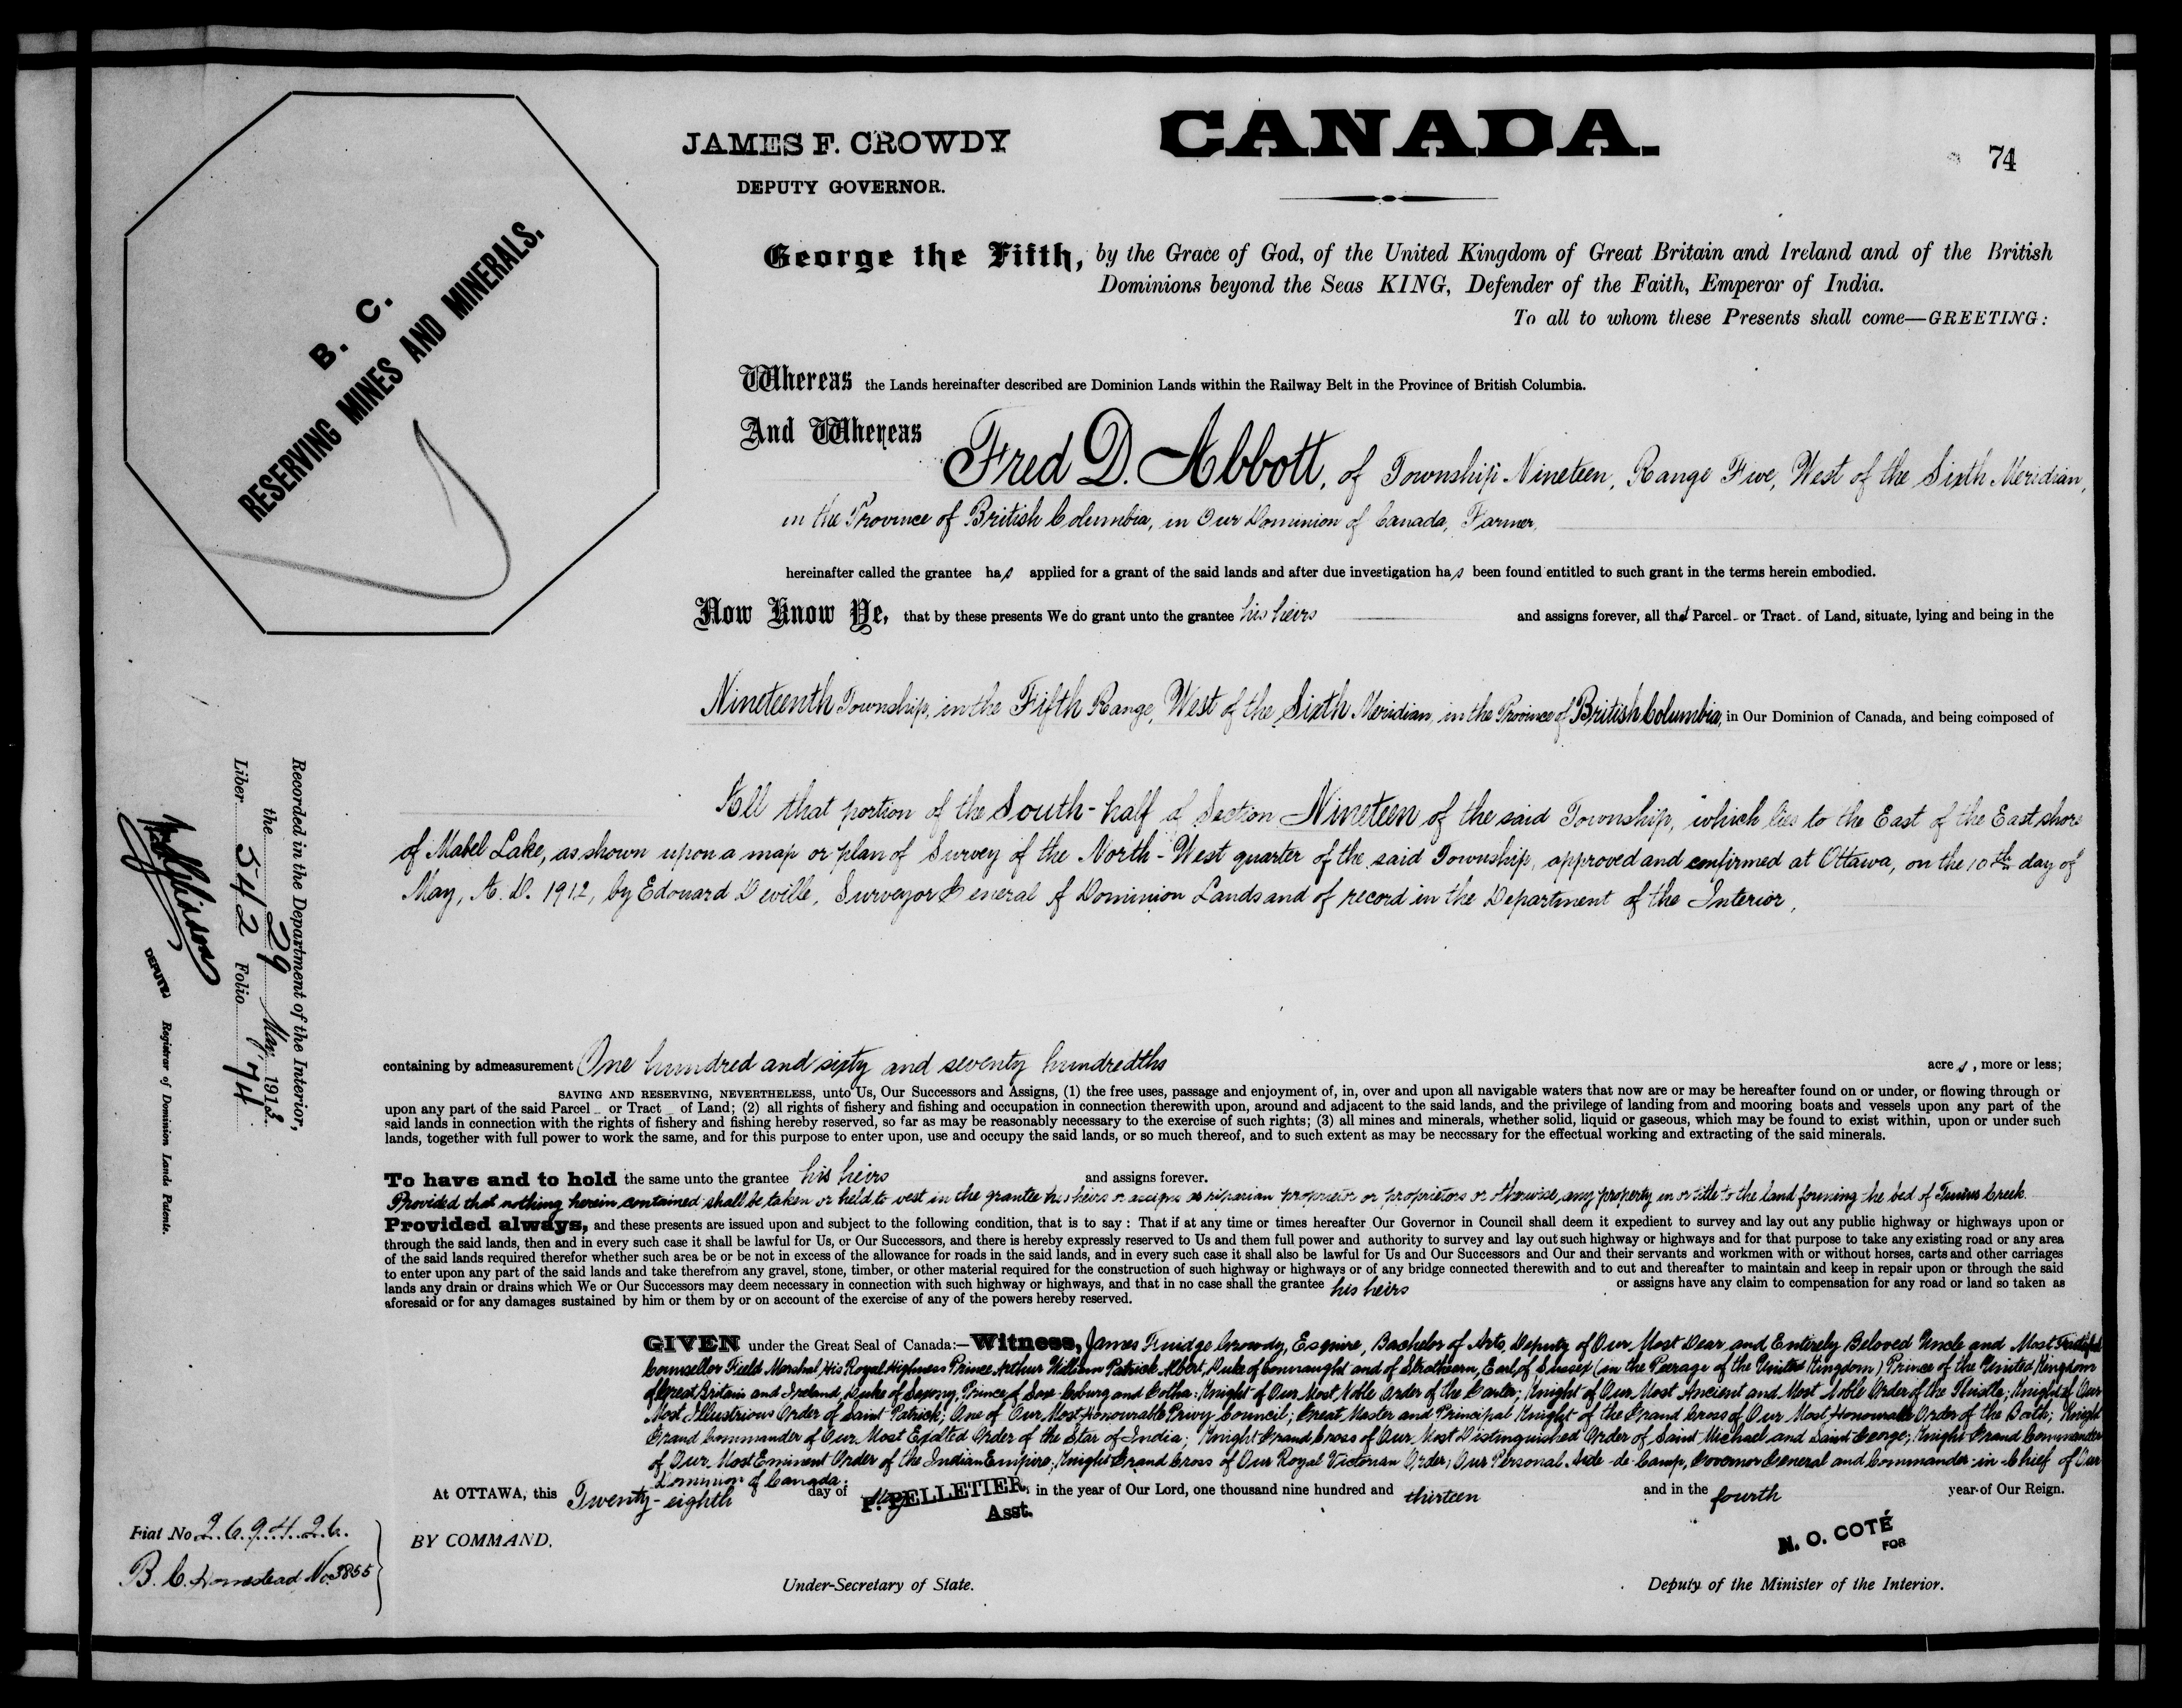 JAMES F. CROWDY
DEPUTY GOVERNOR.
CANADA.
74
B. C.
RESERVING MINES AND MINERALS.
George the Fifth, by the Grace of God, of the United Kingdom of Great Britain and Ireland and of the British
Dominions beyond the Seas KING, Defender of the Faith, Emperor of India.
To all to whom these Presents shall come—GREETING:
Whereas the Lands hereinafter described are Dominion Lands within the Railway Belt in the Province of British Columbia.
And Whereas Fred D. Abbott, of Township Nineteen, Range Five, West of the Sixth Meridian,
in the Province of British Columbia, in Our Dominion of Canada, Farmer,
hereinafter called the grantee has applied for a grant of the said lands and after due investigation has been found entitled to such grant in the terms herein embodied.
Now Know Ye, that by these presents We do grant unto the grantee his heirs and assigns forever, all that Parcel or Tract of Land, situate, lying and being in the
Nineteenth Township, in the Fifth Range, West of the Sixth Meridian, in the Province of British Columbia, in Our Dominion of Canada, and being composed of
All that portion of the South-half of Section Nineteen of the said Township, which lies to the East of the East shore
of Mabel Lake, as shown upon a map or plan of Survey of the North-West quarter of the said Township, approved and confirmed at Ottawa, on the 10th day of
May, A. D. 1912, by Edouard Deville, Surveyor General of Dominion Lands and of record in the Department of the Interior,
containing by admeasurement One hundred and sixty and seventy hundredths acres, more or less;
SAVING AND RESERVING, NEVERTHELESS, unto Us, Our Successors and Assigns, (1) the free uses, passage and enjoyment of, in, over and upon all navigable waters that now are or may be hereafter found on or under, or flowing through or
upon any part of the said Parcel or Tract of Land; (2) all rights of fishery and fishing and occupation in connection therewith upon, around and adjacent to the said lands, and the privilege of landing from and mooring boats and vessels upon any part of the
said lands in connection with the rights of fishery and fishing hereby reserved, so far as may be reasonably necessary to the exercise of such rights; (3) all mines and minerals, whether solid, liquid or gaseous, which may be found to exist within, upon or under such
lands, together with full power to work the same, and for this purpose to enter upon, use and occupy the said lands, or so much thereof, and to such extent as may be necessary for the effectual working and extracting of the said minerals.
To have and to hold the same unto the grantee his heirs and assigns forever.
Provided that nothing herein contained shall be taken or held to vest in the grantee his heirs or assigns as riparian proprietor or proprietors or otherwise, any property in or title to the land forming the bed of Creek.
Provided always, and these presents are issued upon and subject to the following condition, that is to say : That if at any time or times hereafter Our Governor in Council shall deem it expedient to survey and lay out any public highway or highways upon or
through the said lands, then and in every such case it shall be lawful for Us, or Our Successors, and there is hereby expressly reserved to Us and them full power and authority to survey and lay out such highway or highways and for that purpose to take any existing road or any area
of the said lands required therefor whether such area be or be not in excess of the allowance for roads in the said lands, and in every such case it shall also be lawful for Us and Our Successors and Our and their servants and workmen with or without horses, carts and other carriages
to enter upon any part of the said lands and take therefrom any gravel, stone, timber, or other material required for the construction of such highway or highways or of any bridge connected therewith and to cut and thereafter to maintain and keep in repair upon or through the said
lands any drain or drains which We or Our Successors may deem necessary in connection with such highway or highways, and that in no case shall the grantee his heirs or assigns have any claim to compensation for any road or land so taken as
aforesaid or for any damages sustained by him or them by or on account of the exercise of any of the powers hereby reserved.
GIVEN under the Great Seal of Canada:—Witness, James Fuidge Crowdy, Esquire, Bachelor of Arts, Deputy of Our Most Dear and Entirely Beloved Uncle and Most Faithful
Counsellor Field Marshal His Royal Highness Prince Arthur William Patrick Albert, Duke of Connaught and of Strathearn, Earl of Sussex (in the Peerage of the United Kingdom) Prince of the United Kingdom
of Great Britain and Ireland, Duke of Saxony, Prince of Saxe-Coburg and Gotha: Knight of Our Most Noble Order of the Garter; Knight of Our Most Ancient and Most Noble Order of the Thistle; Knight of Our
Most Illustrious Order of Saint Patrick; One of Our Most Honourable Privy Council; Great Master and Principal Knight of the Grand Cross of Our Most Honourable Order of the Bath; Knight
Grand Commander of Our Most Exalted Order of the Star of India; Knight Grand Cross of Our Most Distinguished Order of Saint Michael and Saint George; Knight Grand Commander
of Our Most Eminent Order of the Indian Empire; Knight Grand Cross of Our Royal Victorian Order; Our Personal Aide-de-Camp, Governor General and Commander-in-Chief of Our
Dominion of Canada.
At OTTAWA, this Twenty-eighth day of May in the year of Our Lord, one thousand nine hundred and thirteen and in the fourth year of Our Reign.
P. PELLETIER,
Asst.
BY COMMAND,
N. O. COTÉ
FOR
Under-Secretary of State.
Deputy of the Minister of the Interior.
Fiat No 269426.
B. C. Homestead No. 3855
Recorded in the Department of the Interior,
the 29 May 1913.
Liber 542 Folio 74
DEPUTY Registrar of Dominion Lands Patents.